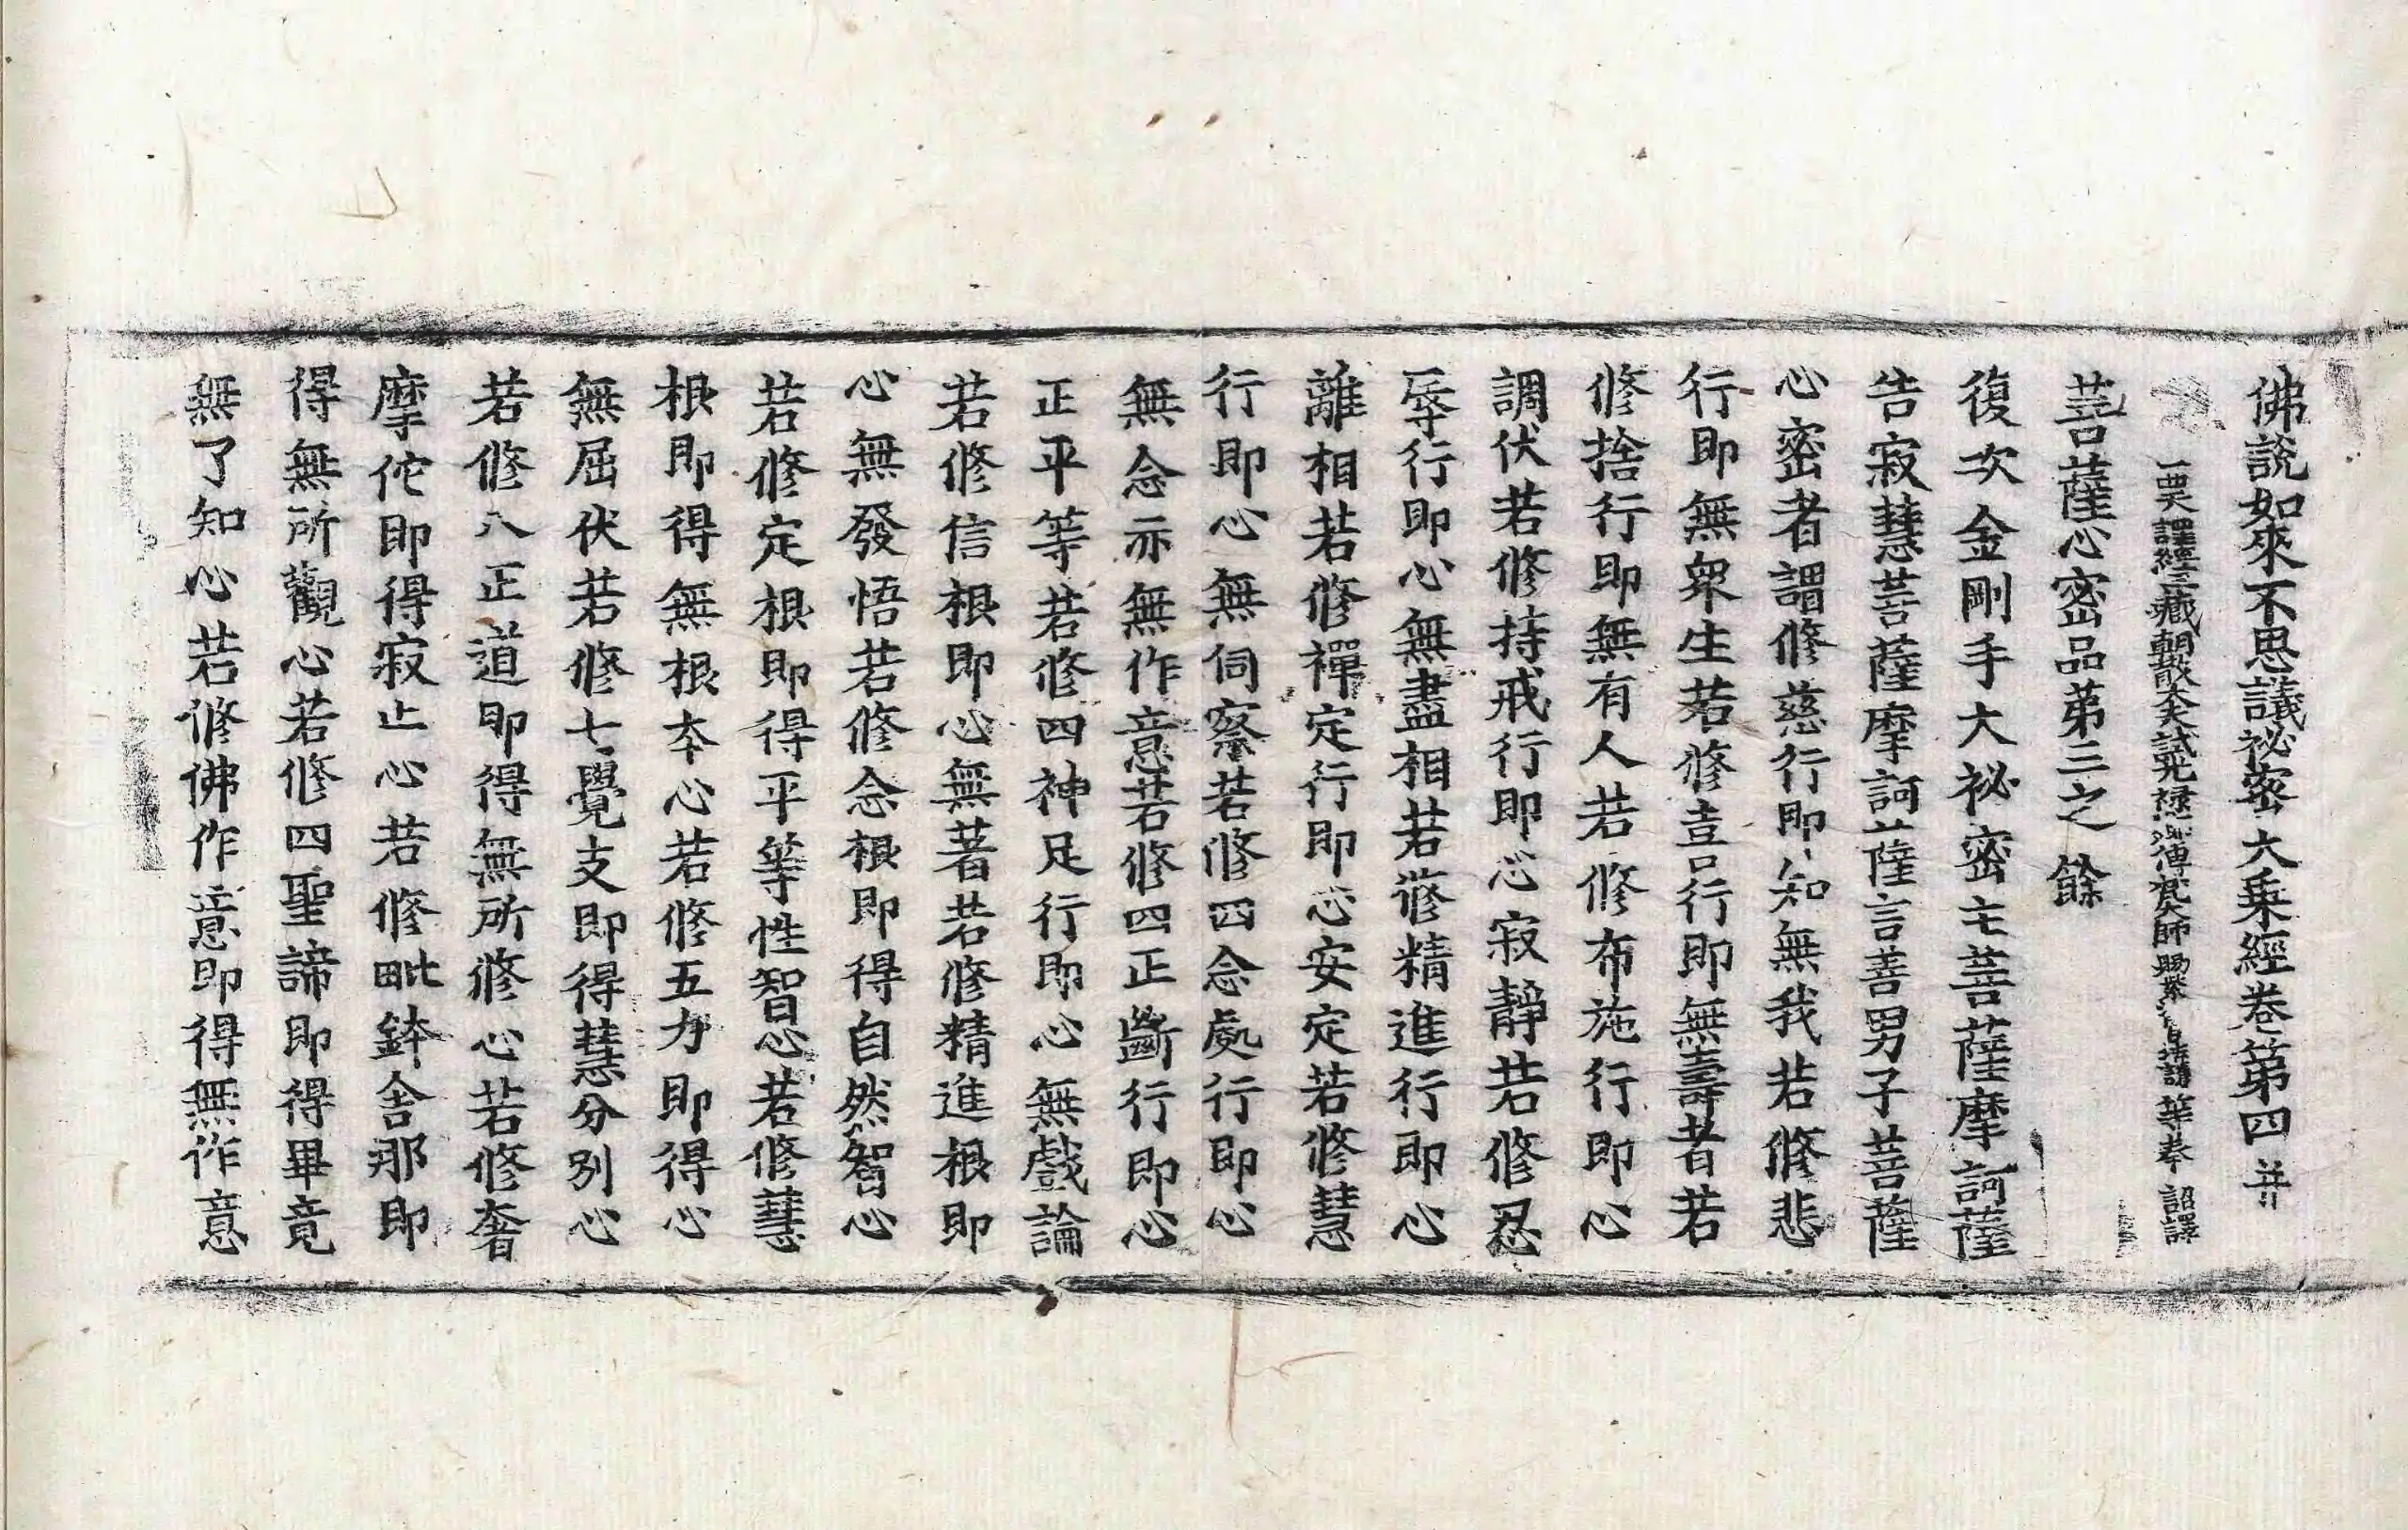 佛說如來不思議祕密大乘經卷第四 并
西天譯經三藏朝散大夫試光祿卿傳梵大師賜紫 護等奉 詔譯
菩薩心密品第三之餘
復次金剛手大祕密主菩薩摩訶薩
告寂慧菩薩摩訶薩言善男子菩薩
心密者謂修慈行即知無我若修悲
行即無衆生若修喜行即無壽者若
修捨行即無有人若修布施行即心
調伏若修持戒行即心寂靜若修忍
辱行即心無盡相若修精進行即心
離相若修禪定行即心安定若修慧
行即心無伺察若修四念處行即心
無念亦無作意若修四正斷行即心
正平等若修四神足行即心無戲論
若修信根即心無著若修精進根即
心無發悟若修念根即得自然智心
若修定根即得平等性智心若修慧
根即得無根本心若修五力即得心
無屈伏若修七覺支即得慧分別心
若修八正道即得無所修心若修奢
摩佗即得寂止心若修毗鉢舍那即
得無所觀心若修四聖諦即得畢竟
無了知心若修佛作意即得無作意